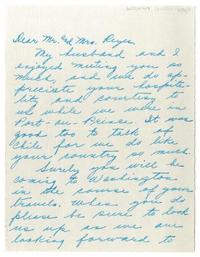 Dear Mr. and Mrs. Reyes
My husband and I
enjoyed meeting you so
much, and we do ap-
preciate your hospita-
lity and courtesy to
us while we were in
Port-au-Prince. It was
good too to talk of
Chile for we do like
your country so much.
Surely you will be
coming to Washington
in the course of your
travels. When you do
please be sure to look
us up as we are
looking forward to